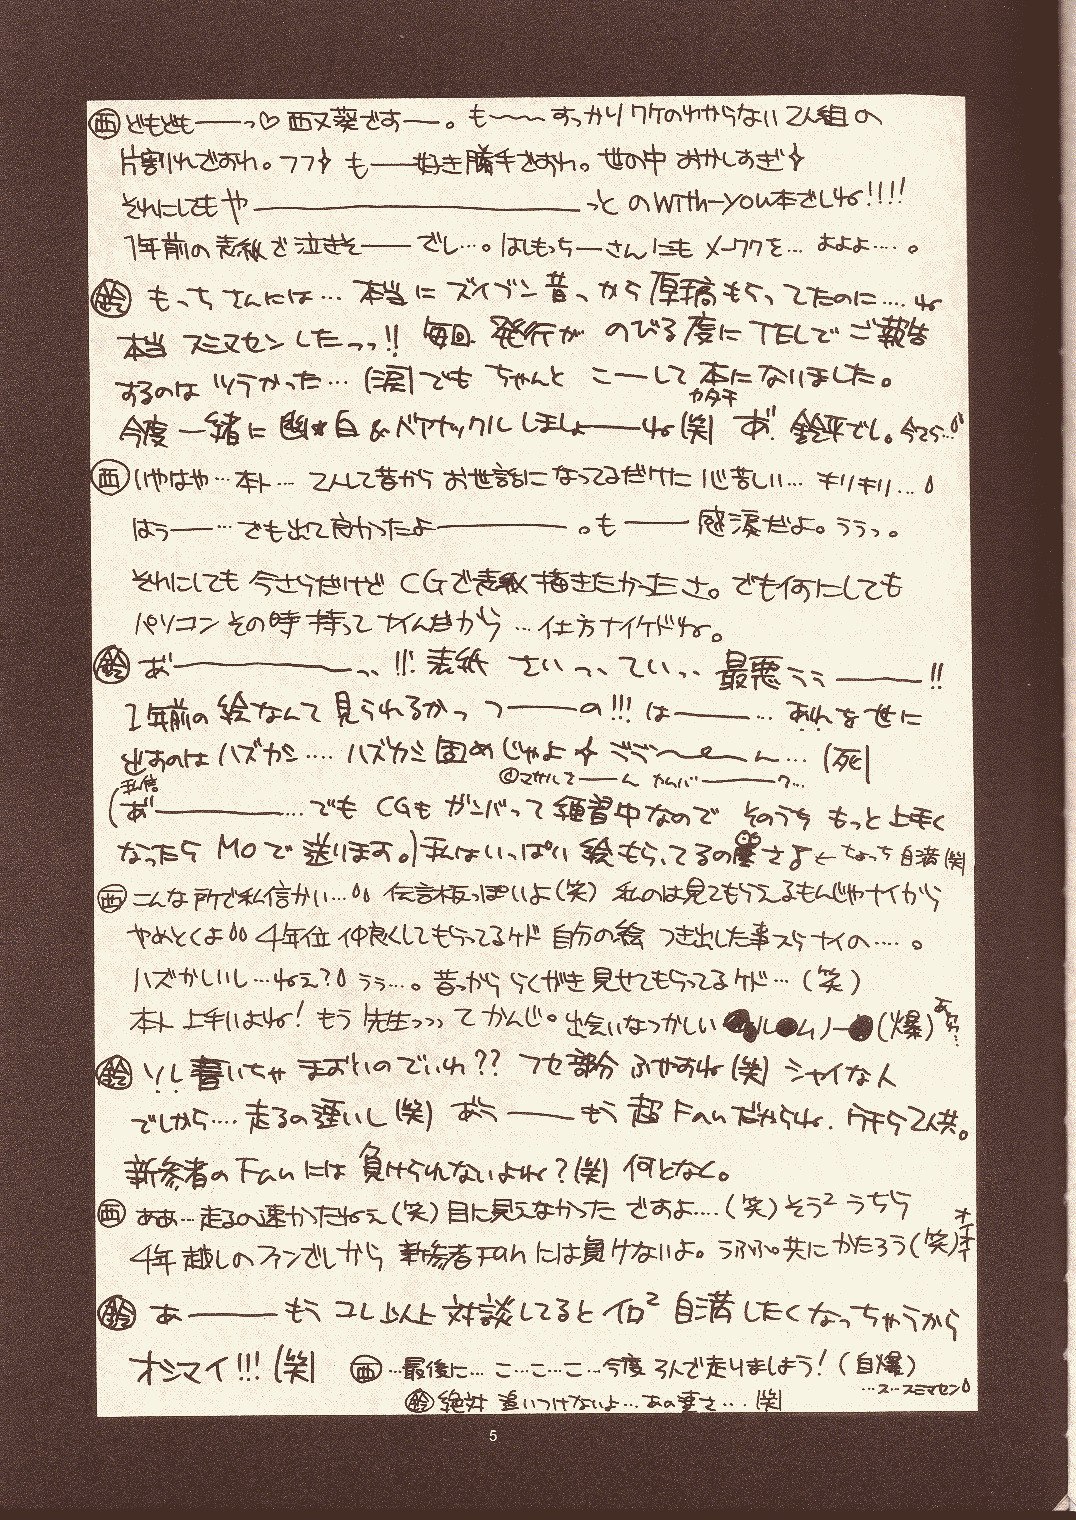 西 どもども――っ♡ 西又葵です――。も～～ すっかりワケのわからない2人組の
片割れでおわ。フフ も――好き勝手でおわ。世の中 おかしすぎ
それにしてもや――――っと のWith-you本でしね!!!!
1年前の表紙で泣きそ――でし…。はしもっち―さんにもメーワクを… およよ…。
鈴 もっちさんには… 本当にズイブン昔っから厚稿もらってたのに…. ね
本当 スミマセンしたっっ!! 毎回 発行がのびる度にTELでご報告
するのはツラかった… (涙)でも ちゃんと こーして本になりました。
カタチ
今度 一緒に幽★白&バヤナックルしましょ――ね(笑) あ゛ 鈴平でし。今さら…
西 いやはや…本ト… 2人して昔からお世話になってるだけに心苦しい… キリキリ…
はぅ――… でも出て良かったよ――――。も――感涙だよ。ううっ。
それにしても 今さらだけど CGで表紙描きたかったさ。でも何にしても
パソコンその時持ってナイんだから …仕方ナイケドね。
鈴 あ゛――――っ、!!! 表紙 さいっ、てい、、 最悪 うぅ――!!
1年前の絵なんて見られるかっ つ――の!!! は――… あれを世に
出すのはハズカシ…. ハズカシ固めじゃよ ごご～～ん… (死)
私信
(あ゛――――…でも CGもガンバって練習中なので そのうち もっと上手く
なったら MOで送ります。)私はいっぱい 絵もらってるの さよ← ちょっち 自満(笑)
西 こんな所で私信かい… 伝言板っぽいよ(笑) 私のは見てもらえるもんじゃナイから
やめとくよ 4年位 仲良くしてもらってるケド 自分の絵 つき出した事スらナイの…。
ハズかしいし…ねぇ? うぅ…。昔っから らくがき見せてもらってるケド…(笑)
本ト 上手いよね! もう 先生っっっ て かんじ。出会いなつかしい ●ル●ム ノー●(爆)
鈴 ソレ書いちゃ まずいのでわ?? フセ部分 ふやすね(笑) シャイな人
でしから…. 走るの速いし(笑) あぅ――もう 超 Fanだからね. ウチら2人共。
新参者のFanには 負けられないよね?(笑) 何となく。
西 ああ…走るの速かったねぇ(笑)目に見えなかった ですよ….(笑)そう² うちら
4年越しのファンでしから 新参者Fanには負けないよ。うふふ。共にかたろう(笑)オイオイ
鈴 あ――もう コレ以上 対談してると イロ² 自満したくなっちゃうから
オシマイ!!! (笑) 西 …最後に… こ…こ…こ…今度 3人で走りましょう!(自爆)
…ス…スミマセン
鈴 絶対 追いつけないよ…あの速さ… (笑)
5